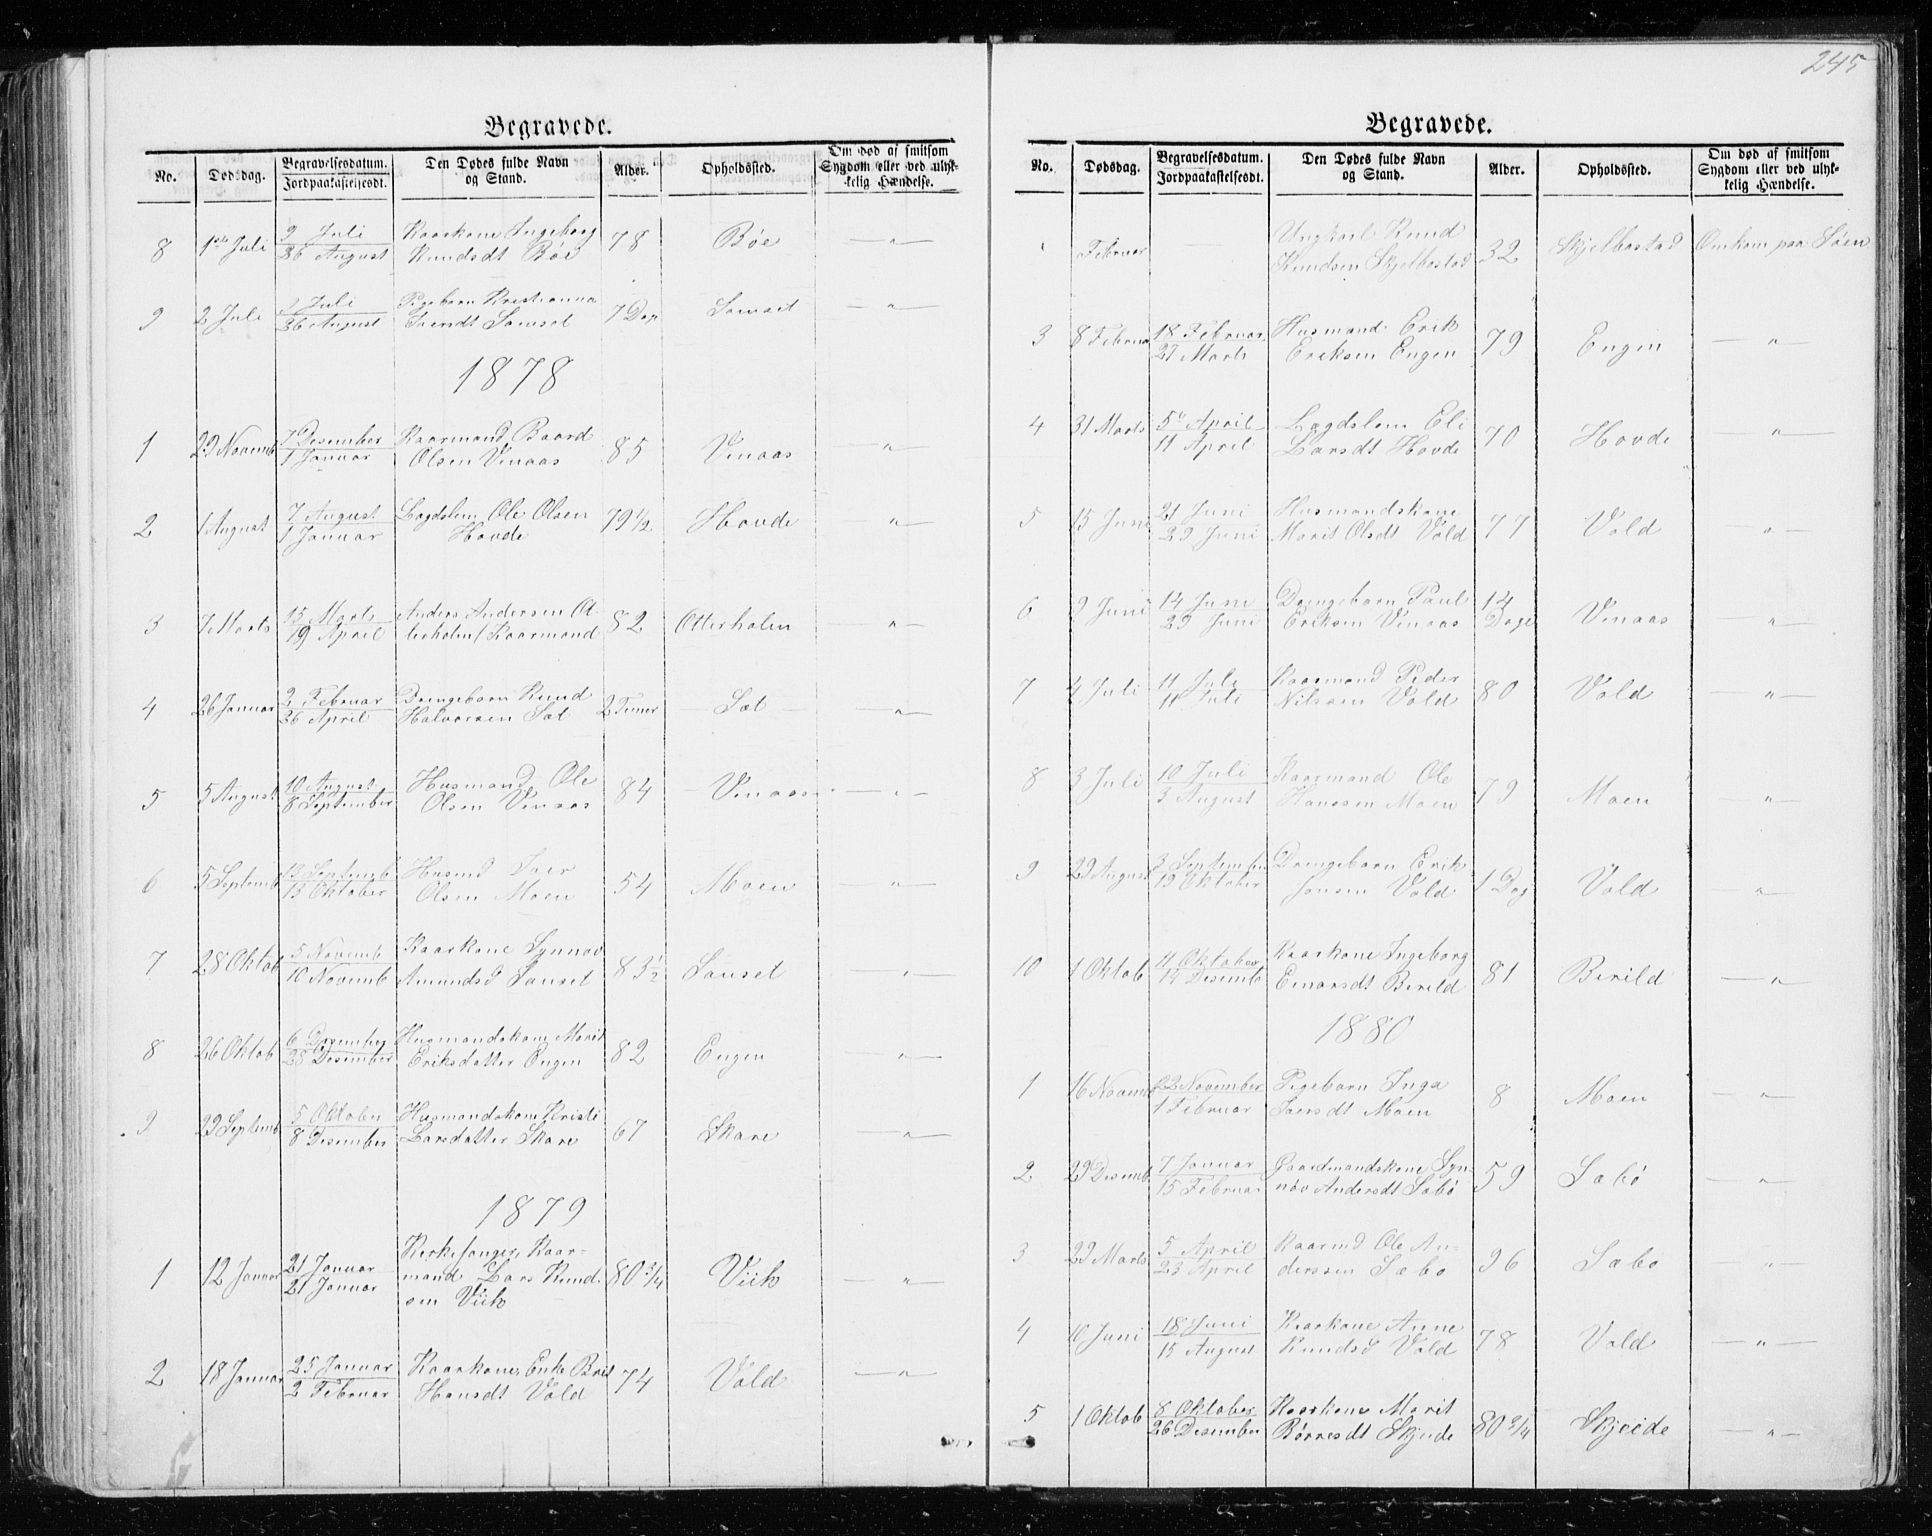 245
Begravede.
No. Dødsdag. Begravelsesdatum. Jordpaakastelsesdt. Den Dødes fulde Navn og Stand. Alder. Opholdssted. Om død af smitsom Sygdom eller ved ulykkelig Hændelse.
8 1ste Juli 9 Juli Kaarkone Ingeborg 78 Bøe — " —
26 August Knudsdt Bøe
9 2 Juli Juli Pigebarn 7 Dage — " —
26 August
1878
1 29 Novemb 7 Desember Kaarmand Baard 85 Vinaas — " —
1 Januar Olsen Vinaas
2 1 August 7 August Lagdslem Ole Olsen 79 1/2 Hovde — " —
1 Januar Hovde
3 7 Marts 15 Marts Anders Andersen Ot- 82 Otterholen — " —
19 April terholen (Kaarmand
4 26 Januar 2 Februar Drengebarn Knud 2 Timer Sæt — " —
26 April Halvorsen Sæt
5 5 August 10 August Husmand Ole 84 Vinaas — " —
8 September Olsen Vinaas
6 5 Septemb 13 Septemb Husmd Iver 54 Moen — " —
13 Oktober Olsen Moen
7 28 Oktob 5 Novemb Kaarkone Synnøv 83 1/2 Sauset — " —
10 Novemb Amundsd Sauset
8 26 Oktob 6 Desember Husmandskone Marit 82 Engen — " —
28 Desember Eriksdatter Engen
9 29 Septemb 5 Oktober Husmandskone Kristi 67 Skare — " —
8 Desember Larsdatter Skare
1879
1 12 Januar 21 Januar Kirkesanger, Kaar- 80 3/4 Viik — " —
21 Januar mand Lars Knud-
sen Viik
2 18 Januar 25 Januar Kaarkone, Enke Brit 74 Vold — " —
2 Februar Hansdt Vold
Begravede.
No. Dødsdag. Begravelsesdatum. Jordpaakastelsesdt. Den Dødes fulde Navn og Stand. Alder. Opholdssted. Om død af smitsom Sygdom eller ved ulykkelig Hændelse.
" Februar — Ungkarl Knud 32 Skjelbostad Omkom paa Søen
Knudsen Skjelbostad
3 8 Februar 18 Februar Husmand Erik 79 Engen — " —
27 Marts Eriksen Engen
4 31 Marts 5 April Lagdslem Eli 70 Hovde — " —
11 April Larsdt Hovde
5 15 Juni 21 Juni Husmandskone 77 Vold — " —
29 Juni Marit Olsdt Vold
6 9 Juni 14 Juni Drengebarn Paul 14 Dage Vinaas — " —
29 Juni Eriksen Vinaas
7 4 Juli 11 Juli Kaarmand Peder 80 Vold — " —
11 Juli Nilssen Vold
8 3 Juli 10 Juli Kaarmand Ole 79 Moen — " —
3 August Hanssen Moen
9 29 August 3 September Drengebarn Erik 1 Dag Vold — " —
19 Oktober Jonsen Vold
10 1 Oktob 11 Oktober Kaarkone Ingeborg 81 Berild — " —
14 Desemb Einarsdt Berild
1880
1 16 Novemb 22 November Pigebarn Inga 8 Moen — " —
1 Februar Iversdt Moen
2 29 Desemb 7 Januar Gaardmandskone Syn- 59 Sæbø — " —
15 Februar nøv Andersdt Sæbø
3 29 Marts 5 April Kaarmd Ole An- 96 Sæbø — " —
23 April derssen Sæbø
4 10 Juni 18 Juni Kaarkone Anne 78 Vold — " —
15 August Knudsd Vold
5 1 Oktob 8 Oktober Kaarkone Marit 80 3/4 Skjeide — " —
26 Desember Børresdt Skjeide